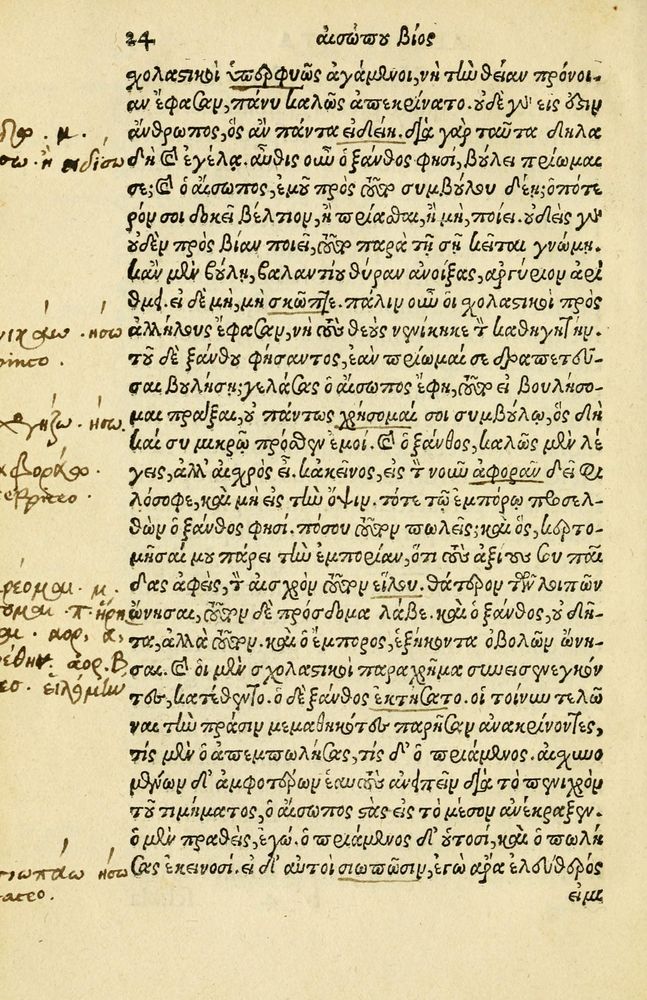 24 αἰσώπου βίος
χολαστικοὶ ὑπερφυῶς ἀγάμενοι, νὴ τὴν θείαν πρόνοι-
αν ἔφασαν, πάνυ καλῶς ἀπεκρίνατο. οὐδὲ γὰρ εἷς ἐστὶν
ἄνθρωπος, ὃς ἂν πάντα εἰδείη. διὰ γὰρ ταῦτα δηλα
δὴ καὶ ἐγέλα. αὖθις οὖν ὁ ξάνθος φησί, βούλει πρίωμαί
σε; καὶ ὁ αἴσωπος, ἐμοῦ πρὸς τοῦτο συμβούλου δέῃ; ὁπότε
ρόν σοι δοκεῖ βέλτιον, ἢ πρίασθαι, ἢ μὴ, ποίει. οὐδεὶς γὰρ
οὐδὲν πρὸς βίαν ποιεῖ, τοῦτο παρὰ τῇ σῇ κεῖται γνώμῃ.
κἂν μὲν βούλῃ, βαλαντίου θύραν ἀνοίξας, ἀργύριον ἀρί
θμει. εἰ δὲ μὴ, μὴ σκῶπτε. πάλιν οὖν οἱ χολαστικοὶ πρὸς
ἀλλήλους ἔφασαν, νὴ τοὺς θεοὺς νενίκηκε τὸν καθηγητήν.
τοῦ δὲ ξάνθου φήσαντος, ἐὰν πρίωμαί σε δραπετεῦ-
σαι βουλήσῃ; γελάσας ὁ αἴσωπος ἔφη, τοῦτο εἰ βουλήσο-
μαι πρᾶξαι, οὐ πάντως χρήσομαί σοι συμβούλῳ, ὡς δὴ
καὶ σὺ μικρῷ πρόσθεν ἐμοί. καὶ ὁ ξάνθος, καλῶς μὲν λέ
γεις, ἀλλ' αἰσχρὸς εἶ. κἀκεῖνος, εἰς τὸν νοῦν ἀφορᾶν δεῖ φι
λόσοφε, καὶ μὴ εἰς τὴν ὄψιν. τότε τῷ ἐμπόρῳ προσελ-
θὼν ὁ ξάνθος φησί. πόσου τοῦτον πωλεῖς; καὶ ὃς, κερτο-
μῆσαί μου πάρει τὴν ἐμπορίαν, ὅτι τοὺς ἀξίους σου παῖ
δας ἀφεὶς, τὸν αἰσχρὸν τοῦτον εἵλου. θάτερον τῶν λοιπῶν
ὤνησαι, τοῦτον δὲ πρόσδομα λάβε. καὶ ὁ ξάνθος, οὐ δῆ-
τα, ἀλλὰ τοῦτον. καὶ ὁ ἔμπορος, ἑξήκοντα ὀβολῶν ὤνη-
σαι. καὶ οἱ μὲν σχολαστικοὶ παραχρῆμα συνεισενεγκόν
τες, κατέθεντο. ὁ δὲ ξάνθος ἐκτήσατο. οἱ τοίνυν τελῶ
ναι τὴν πράσιν μεμαθηκότες παρῆσαν ἀνακρίνοντες,
τίς μὲν ὁ ἀπεμπωλήσας, τίς δ' ὁ πριάμενος. αἰσχυνο
μένων δ' ἀμφοτέρων ἑαυτοὺς ἀνειπεῖν διὰ τὸ πενιχρὸν
τοῦ τιμήματος, ὁ αἴσωπος στὰς εἰς τὸ μέσον ἀνέκραξεν.
ὁ μὲν πραθεὶς, ἐγώ. ὁ πριάμενος δ' οὑτοσί, καὶ ὁ πωλή
σας ἐκεινοσί. εἰ δ' αὐτοὶ σιωπῶσιν, ἐγὼ ἄρα ἐλεύθερός
εἰμι